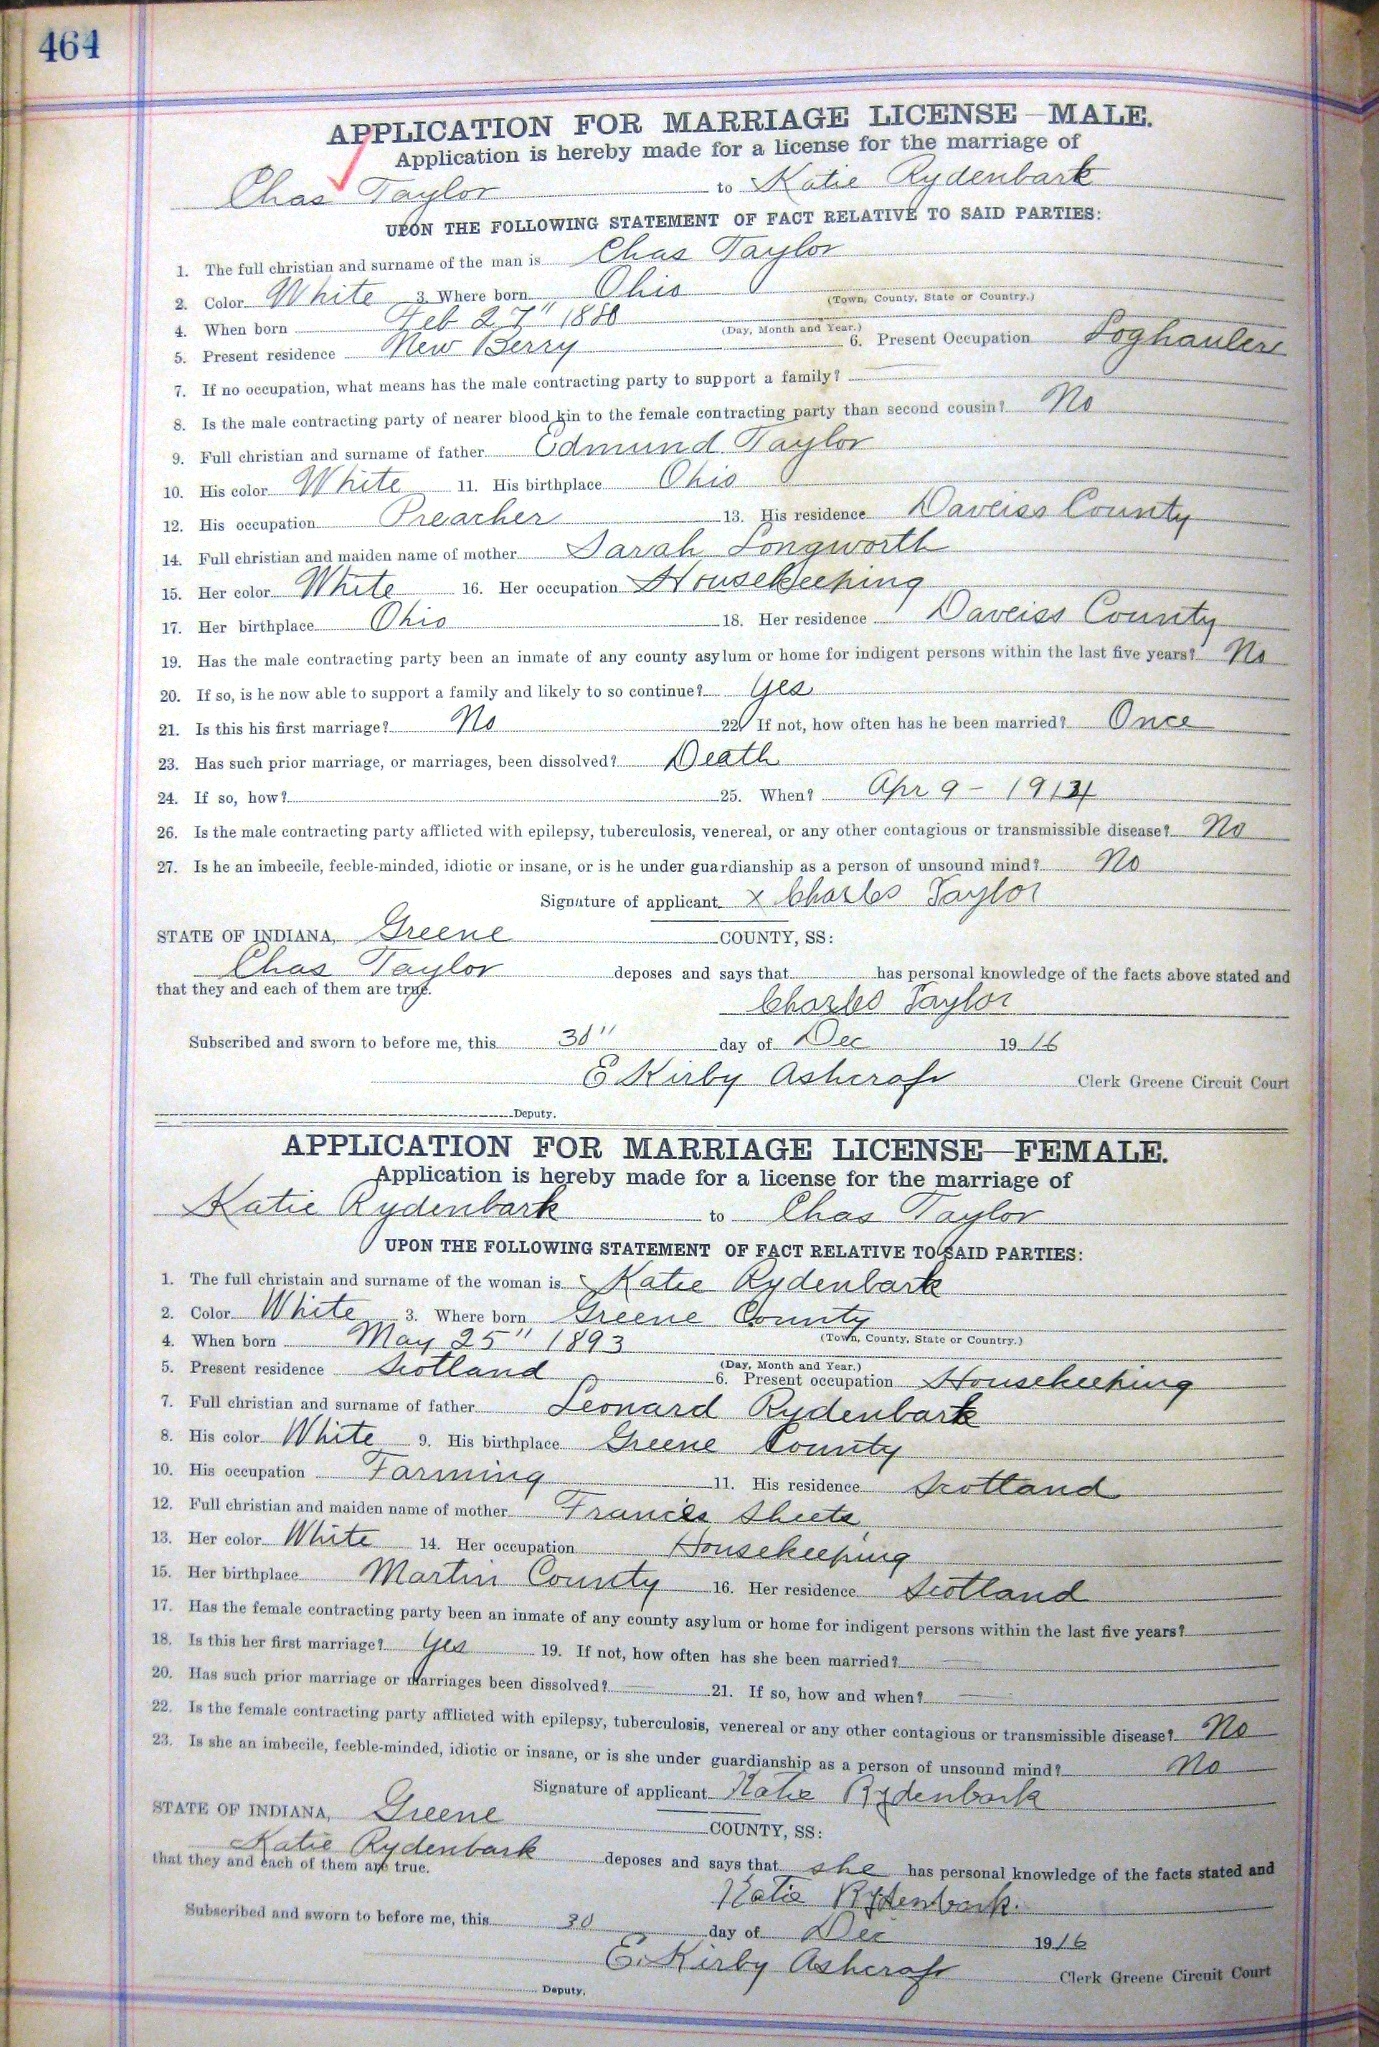 464
APPLICATION FOR MARRIAGE LICENSE—MALE.
Application is hereby made for a license for the marriage of
Chas Taylor to Katie Rydenbark
UPON THE FOLLOWING STATEMENT OF FACT RELATIVE TO SAID PARTIES:
1. The full christian and surname of the man is Chas Taylor
2. Color White 3. Where born Ohio
(Town, County, State or Country.)
4. When born Feb 27" 1880
(Day, Month and Year.)
5. Present residence New Berry 6. Present Occupation Loghauler
7. If no occupation, what means has the male contracting party to support a family? —
8. Is the male contracting party of nearer blood kin to the female contracting party than second cousin? No
9. Full christian and surname of father Edmund Taylor
10. His color White 11. His birthplace Ohio
12. His occupation Preacher 13. His residence Daveiss County
14. Full christian and maiden name of mother Sarah Longworth
15. Her color White 16. Her occupation Housekeeping
17. Her birthplace Ohio 18. Her residence Daveiss County
19. Has the male contracting party been an inmate of any county asylum or home for indigent persons within the last five years? No
20. If so, is he now able to support a family and likely to so continue? Yes
21. Is this his first marriage? No 22. If not, how often has he been married? Once
23. Has such prior marriage, or marriages, been dissolved? Death
24. If so, how? 25. When? Apr 9 -
26. Is the male contracting party afflicted with epilepsy, tuberculosis, venereal, or any other contagious or transmissible disease? No
27. Is he an imbecile, feeble-minded, idiotic or insane, or is he under guardianship as a person of unsound mind? No
Signature of applicant x Charles Taylor
STATE OF INDIANA, Greene COUNTY, SS:
Chas Taylor deposes and says that has personal knowledge of the facts above stated and
that they and each of them are true.
Charles Taylor
Subscribed and sworn to before me, this 30" day of Dec 1916
E Kirby Ashcraft Clerk Greene Circuit Court
Deputy.
APPLICATION FOR MARRIAGE LICENSE—FEMALE.
Application is hereby made for a license for the marriage of
Katie Rydenbark to Chas Taylor
UPON THE FOLLOWING STATEMENT OF FACT RELATIVE TO SAID PARTIES:
1. The full christain and surname of the woman is Katie Rydenbark
2. Color White 3. Where born Greene County
(Town, County, State or Country.)
4. When born May 25" 1893
(Day, Month and Year.)
5. Present residence Scotland 6. Present occupation Housekeeping
7. Full christian and surname of father Leonard Rydenbark
8. His color White 9. His birthplace Greene County
10. His occupation Farming 11. His residence Scotland
12. Full christian and maiden name of mother Francis Sheets
13. Her color White 14. Her occupation Housekeeping
15. Her birthplace Martin County 16. Her residence Scotland
17. Has the female contracting party been an inmate of any county asylum or home for indigent persons within the last five years?
18. Is this her first marriage? Yes 19. If not, how often has she been married? —
20. Has such prior marriage or marriages been dissolved? — 21. If so, how and when? —
22. Is the female contracting party afflicted with epilepsy, tuberculosis, venereal or any other contagious or transmissible disease? No
23. Is she an imbecile, feeble-minded, idiotic or insane, or is she under guardianship as a person of unsound mind? No
Signature of applicant Katie Rydenbark
STATE OF INDIANA, Greene COUNTY, SS:
Katie Rydenbark deposes and says that she has personal knowledge of the facts stated and
that they and each of them are true.
Katie Rydenbark.
Subscribed and sworn to before me, this 30 day of Dec 1916
E. Kirby Ashcraft Clerk Greene Circuit Court
Deputy.